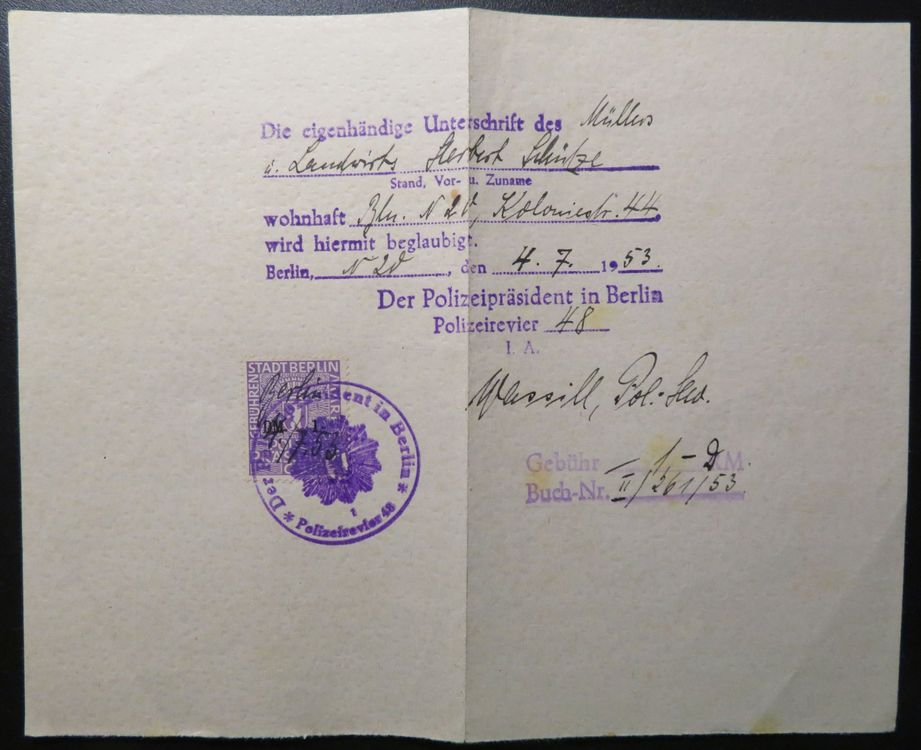 Die eigenhändige Unterschrift des Müllers
u. Landwirts Herbert Schütze
Stand, Vor- u. Zuname
wohnhaft Bln. N 20, Koloniestr. 44,
wird hiermit beglaubigt.
Berlin, N 20, den 4. 7. 1953.
Der Polizeipräsident in Berlin
Polizeirevier 48
I. A.
Pol.-
STADT BERLIN
GEBÜHREN
Berlin
DM 1
4.7.53
Der Polizeipräsident in Berlin
* Polizeirevier 48 *
Gebühr 1,- D M
Buch-Nr. II/261/53